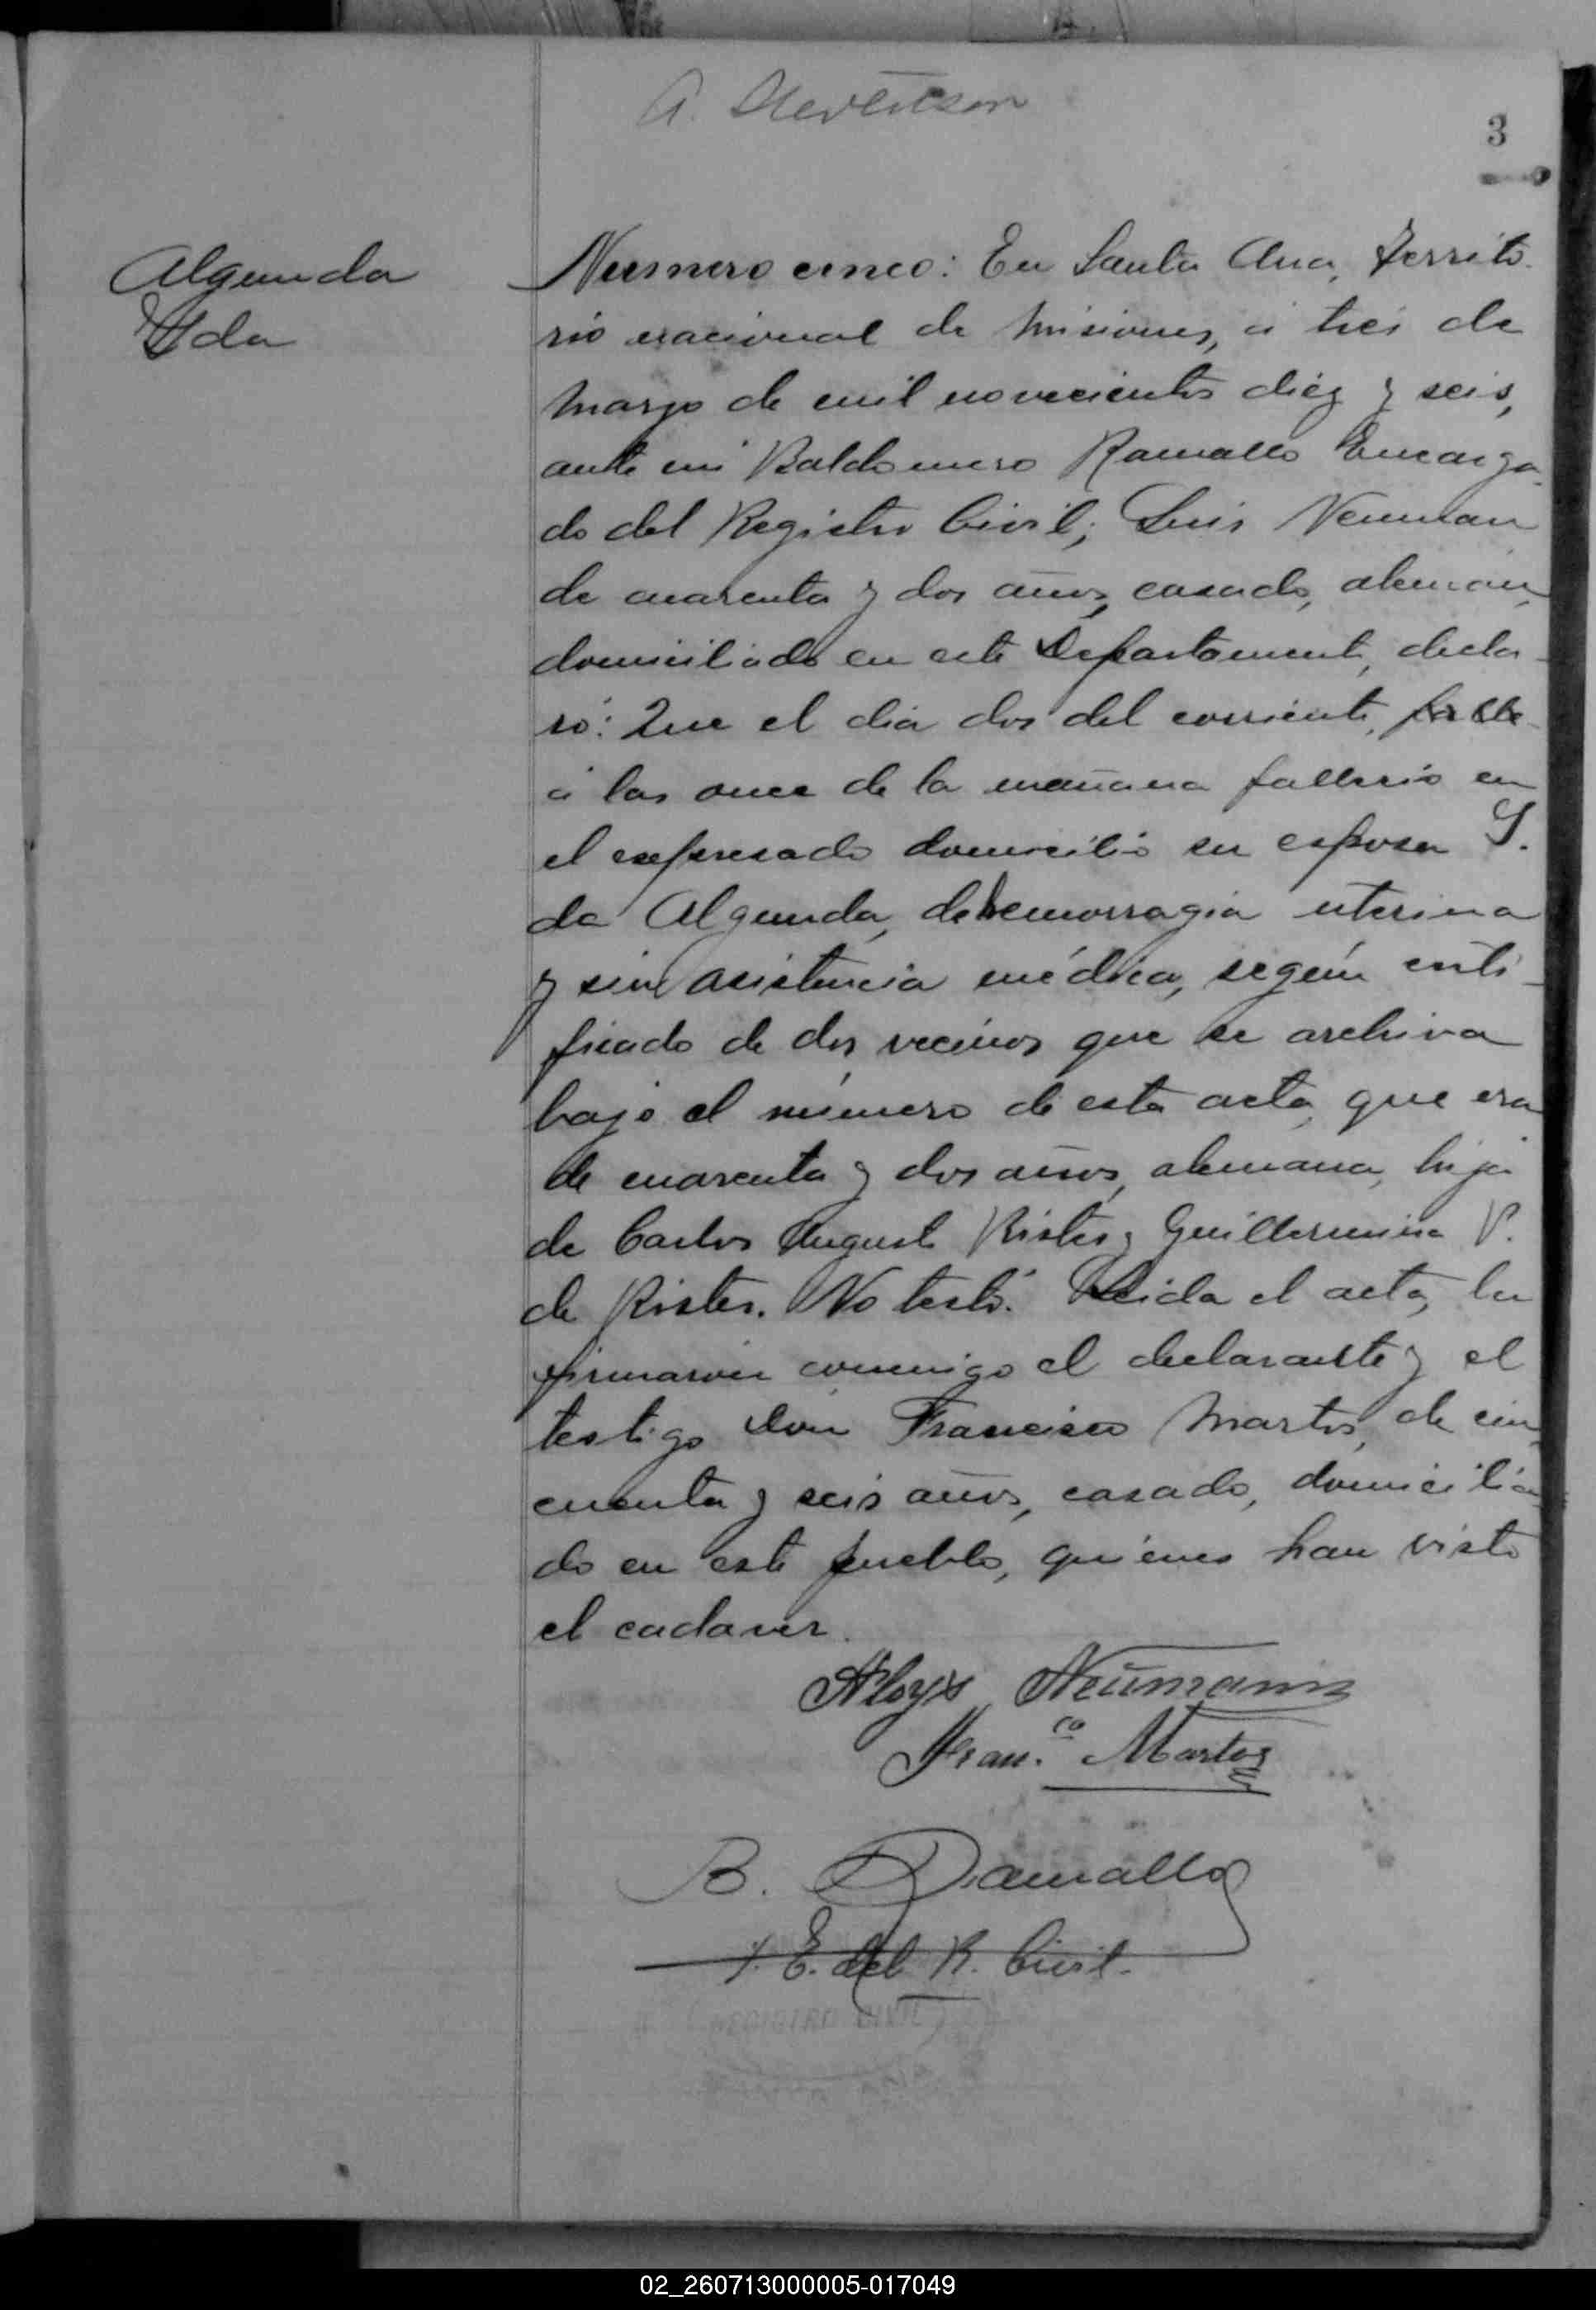 A. Stevenson
3
Algunda
Yda
Numero cinco: En Santa Ana, Territo-
rio nacional de Misiones, á tres de
Marzo de mil novecientos diez y seis,
ante mi Baldomero Ramallo Encarga-
do del Registro Civil; Luis Neuman
de cuarenta y dos años, casado, alemán,
domiciliado en este Departamento, decla-
ró: Que el día dos del corriente, falle
á las once de la mañana falleció en
el expresado domicilio su esposa Y.
da Algunda, de hemorragia uterina
y sin asistencia médica, según certi-
ficado de dos vecinos que se archiva
bajo el número de esta acta, que era
de cuarenta y dos años, alemana, hija
de Carlos August Rister y Guillermina V.
de Rister. No testó. Leida el acta, la
firmaron conmigo el declarante y el
testigo Don Francisco Martos, de cin
cuenta y seis años, casado, domicilia
do en este pueblo, quienes han visto
el cadaver.
Aloys Neümann
Fran.co Martos
B. Ramallo
E. del R. Civil.
REGISTRO CIVIL
02_260713000005-017049